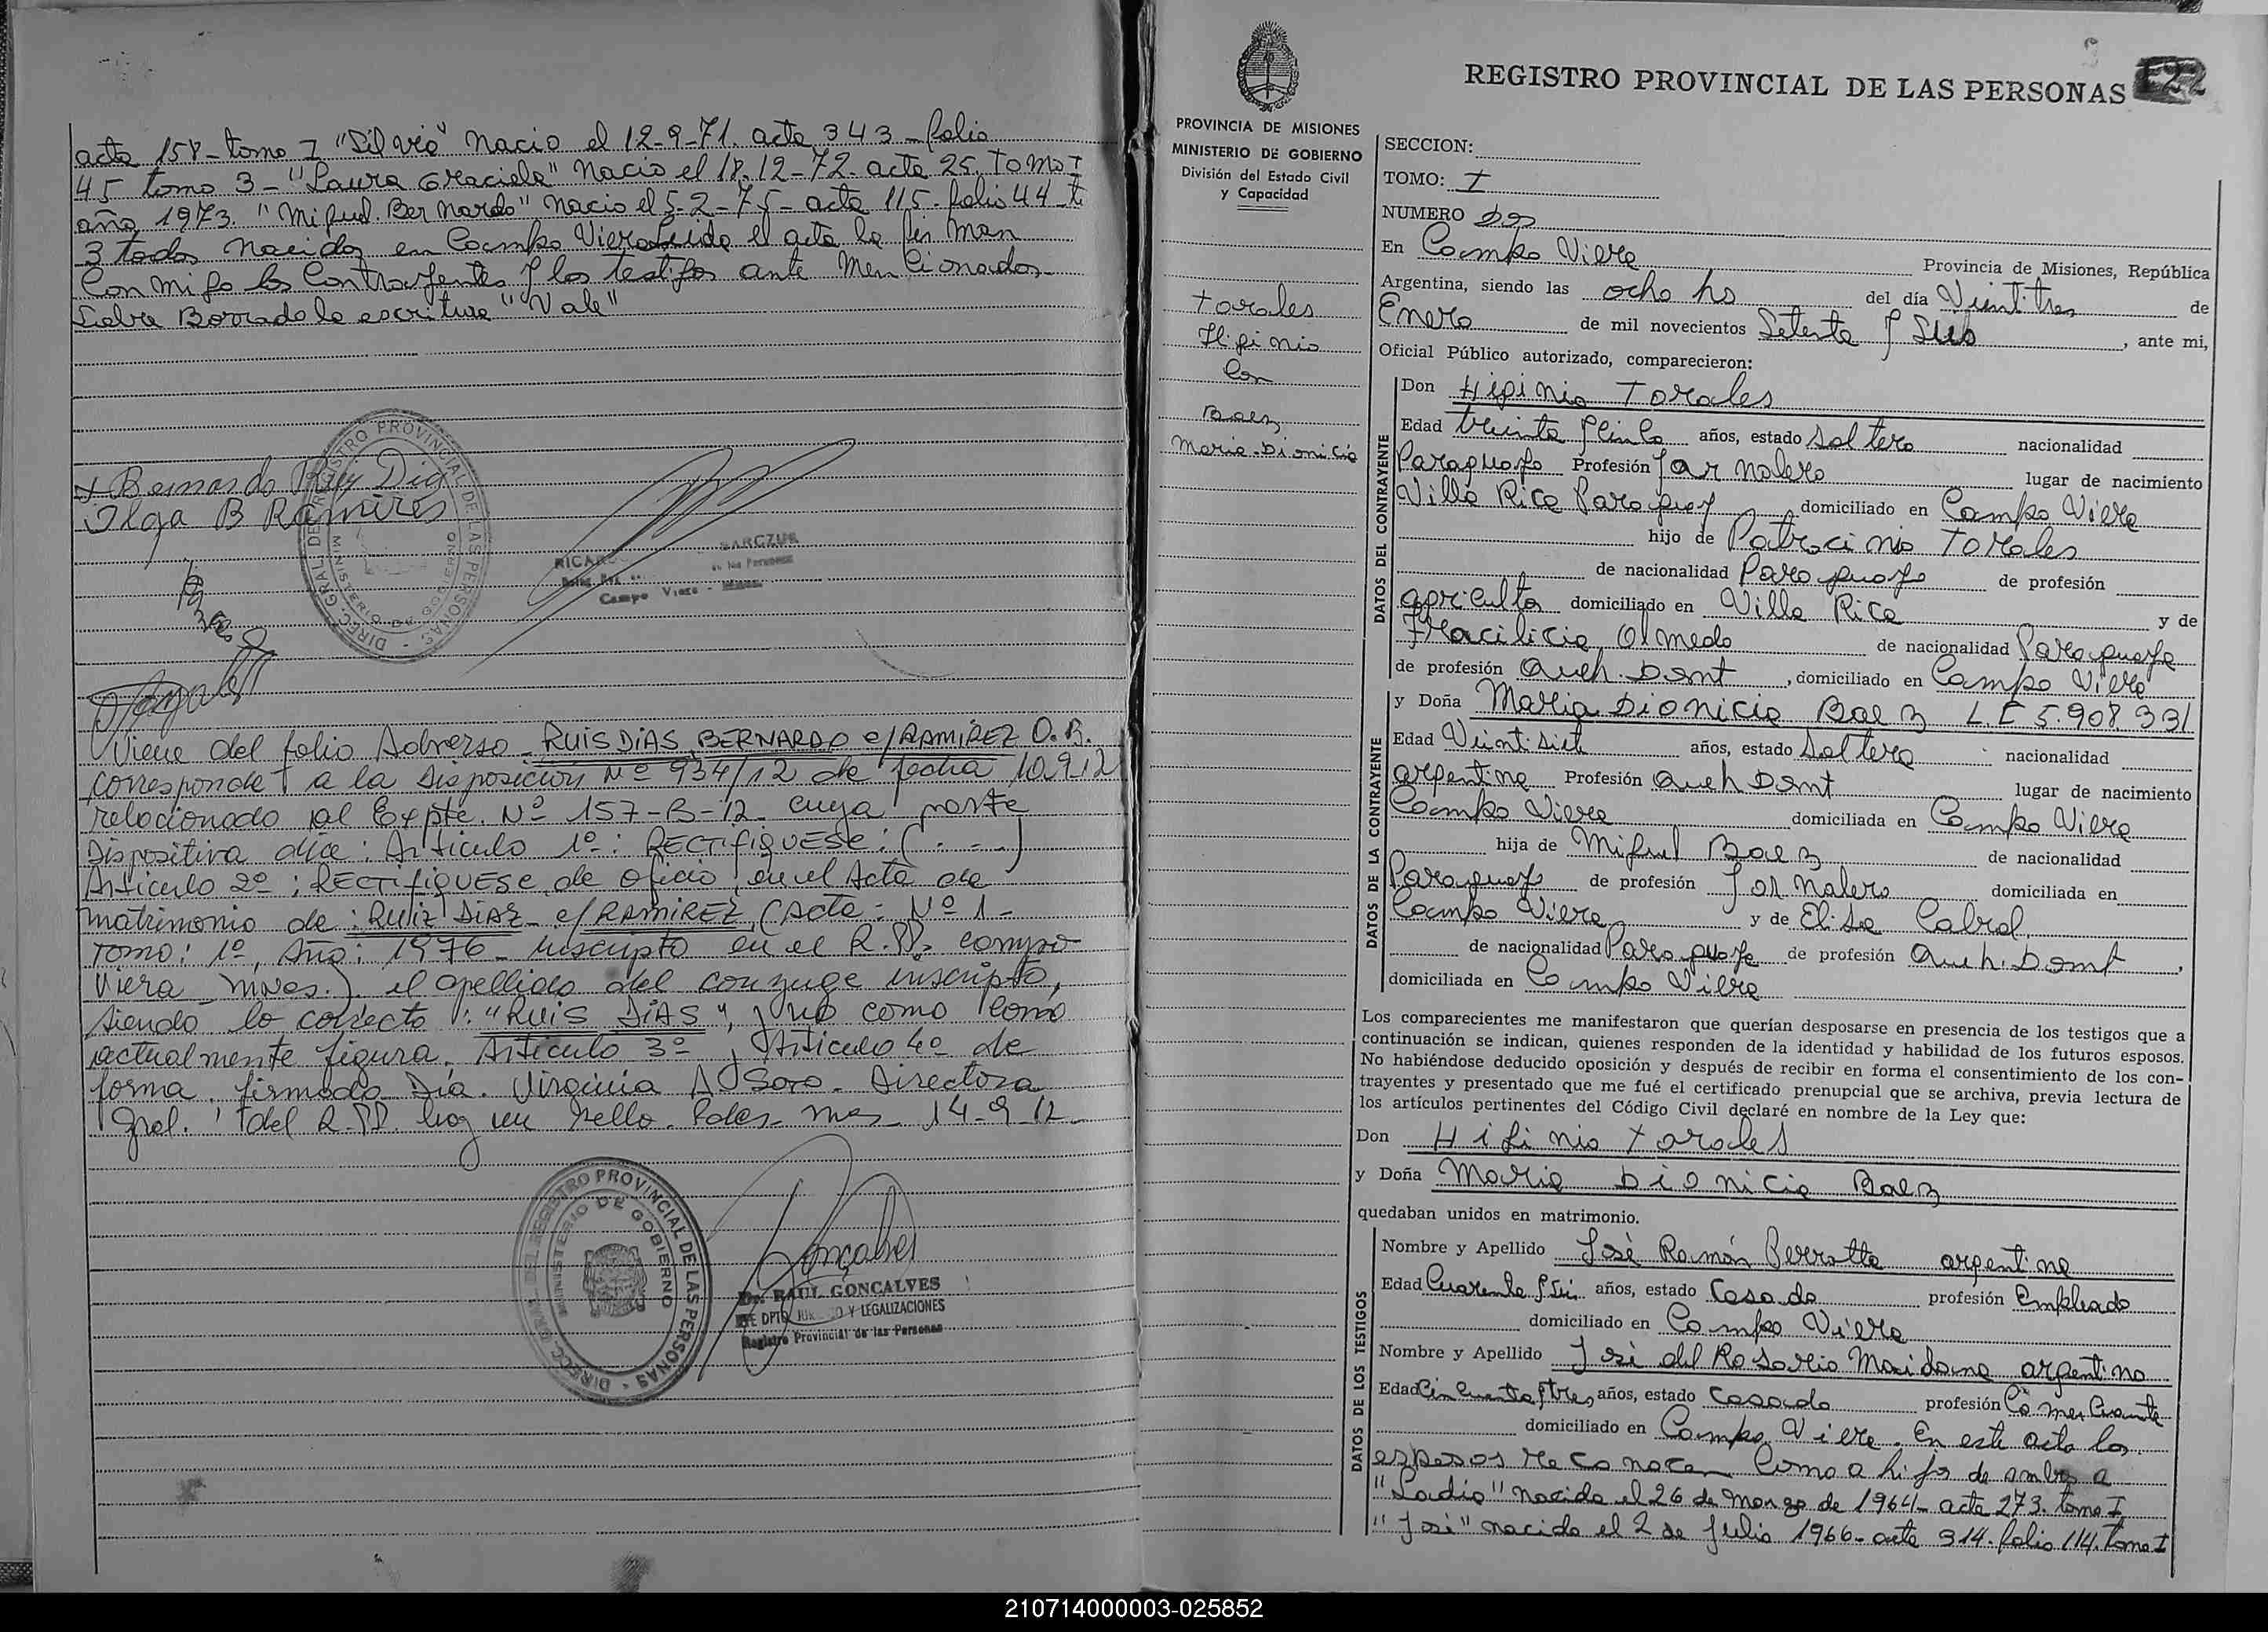 acta 158 - tomo I "Silvio" nacio el 12-9-71. acta 343 - folio
45 tomo 3 - "Laura Graciela" nacio el 18.12-72. acta 25. tomo I
año 1973. "Miguel Bernardo" nacio el 5-2-75 - acta 115. folio 44 - t
3 todos nacidos en Campo Viera Leida el acta la firman
Conmigo los Contrayentes y los testigos ante mencionados.
Sobre Borrado la escritura "Vale"
Bernardo Ruiz Dia
Olga B Ramires
DIREC. GRAL. DEL REGISTRO PROVINCIAL DE LAS PERSONAS
MINISTERIO DE GOBIERNO
Campo Viera -
Viene del folio Adverso - RUIS DIAS, BERNARDO c/ RAMIREZ O.B.
corresponde a la Disposición Nº 934/12 de fecha 10.9.12
relacionado al Expte. Nº 157-B-12 cuya parte
Dispositiva dice: Articulo 1º: RECTIFIQUESE: (...)
Articulo 2º: RECTIFIQUESE de oficio, en el Acta de
matrimonio de: RUIZ DIAZ c/ RAMIREZ (Acta: Nº 1 -
Tomo: 1º, Año: 1976 - inscripto en el R.PP. campo
Viera - Mnes.). el apellido del conyuge inscripto,
siendo lo correcto: "RUIS DIAS", y no como como
actualmente figura. Articulo 3º, Articulo 4º de
forma. firmado Dra. Virginia A Soro - Directora
Gral. del R.PP. hay un sello. Pdas - mnes - 14-9-12
DIRECC. GRAL. DEL REGISTRO PROVINCIAL DE LAS PERSONAS
MINISTERIO DE GOBIERNO
Dr. RAUL GONCALVES
JEFE DPTO JURIDICO Y LEGALIZACIONES
Registro Provincial de las Personas
REGISTRO PROVINCIAL DE LAS PERSONAS
PROVINCIA DE MISIONES
MINISTERIO DE GOBIERNO
División del Estado Civil
y Capacidad
Torales
Higinio
Con
Baez
Maria Dionicia
SECCION:
TOMO: I
NUMERO 22
En Campo Viera Provincia de Misiones, República
Argentina, siendo las ocho hs del día Veintitres de
Enero de mil novecientos Setenta y Seis, ante mi,
Oficial Público autorizado, comparecieron:
DATOS DEL CONTRAYENTE
Don Higinio Torales
Edad treinta y Cinco años, estado Soltero nacionalidad
Paraguayo Profesión Jornalero lugar de nacimiento
Villa Rica Paraguay domiciliado en Campo Viera
hijo de Patrocinio Torales
de nacionalidad Paraguayo de profesión
agriculto domiciliado en Villa Rica y de
Olmedo de nacionalidad Paraguaya
de profesión Queh. Domt, domiciliado en Campo Viera
DATOS DE LA CONTRAYENTE
y Doña Maria Dionicia Baez L.C 5.908.331
Edad Veintisiete años, estado Soltera nacionalidad
argentina Profesión Queh Domt lugar de nacimiento
Campo Viera domiciliada en Campo Viera
hija de Miguel Baez de nacionalidad
Paraguayo de profesión Jornalero domiciliada en
Campo Viera y de Elisa Cabral
de nacionalidad Paraguaya de profesión Queh. Domt,
domiciliada en Campo Viera
Los comparecientes me manifestaron que querían desposarse en presencia de los testigos que a
continuación se indican, quienes responden de la identidad y habilidad de los futuros esposos.
No habiéndose deducido oposición y después de recibir en forma el consentimiento de los con-
trayentes y presentado que me fué el certificado prenupcial que se archiva, previa lectura de
los artículos pertinentes del Código Civil declaré en nombre de la Ley que:
Don Higinio Torales
y Doña Maria Dionicia Baez
quedaban unidos en matrimonio.
DATOS DE LOS TESTIGOS
Nombre y Apellido José Ramón Perrotta argentino
Edad Cuarenta y Seis años, estado Casado profesión Empleado
domiciliado en Campo Viera
Nombre y Apellido José del Rosario Maidana argentino
Edad Cincuenta y tres años, estado Casado profesión Comerciante
domiciliado en Campo Viera. En este acto los
esposos reconocen como a hijos de ambos a
"Ladio" nacido el 26 de marzo de 1964 - acta 273. tomo I
"José" nacido el 2 de Julio 1966 - acta 314. folio 114. tomo I
210714000003-025852